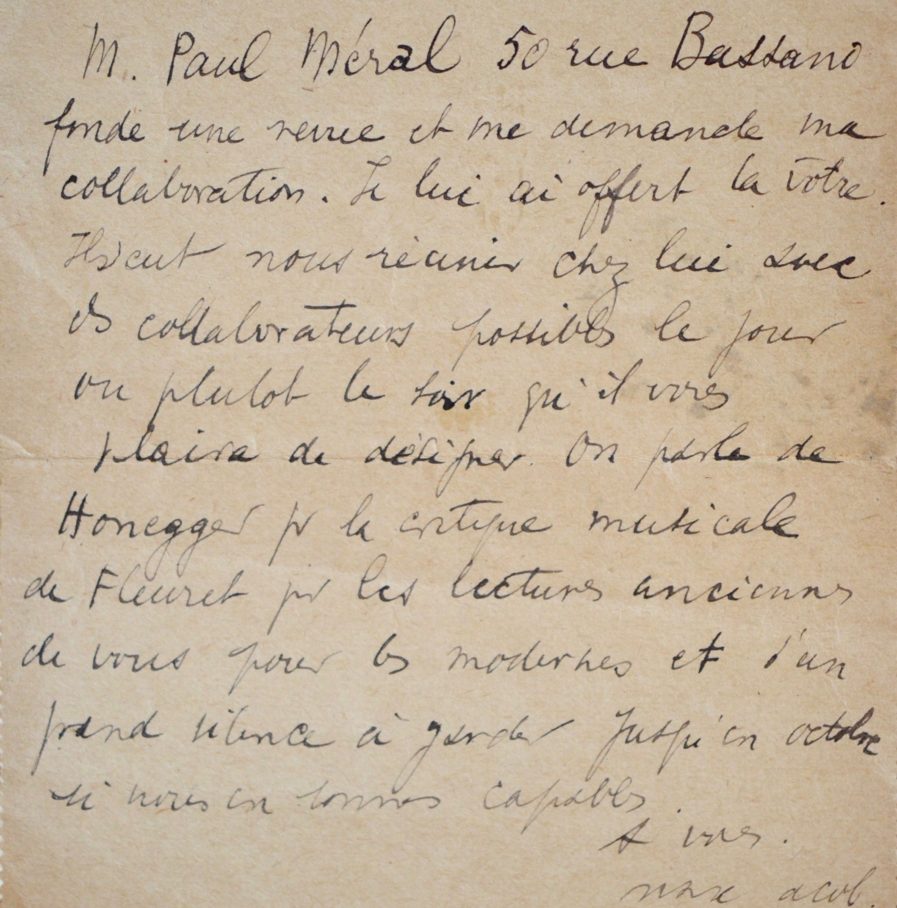 M. Paul Méral 50 rue Bassano
fonde une revue et me demande ma
collaboration. Je lui ai offert la vôtre.
Il veut nous réunir chez lui avec
ds collaborateurs possibles le jour
ou plutot le soir qu'il vous
plaira de désigner. On parle de
Honegger pr la critique musicale
de Fleuret pr les lectures anciennes
de vous pour les modernes et d'un
grand silence à garder jusqu'en octobre
si nous en sommes capables.
A vous.
Max Jacob.